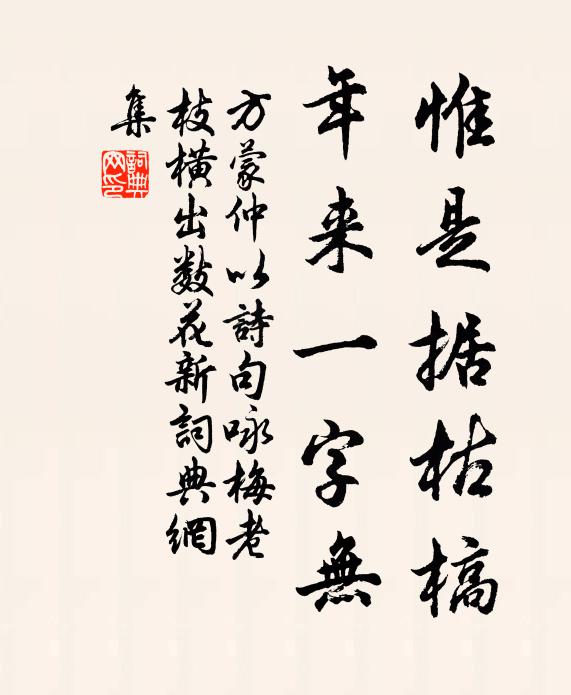 惟是据枯槁
年来一字無
方蒙仲以詩句咏梅老
枝橫出數花新詞典網
集
詞典網印